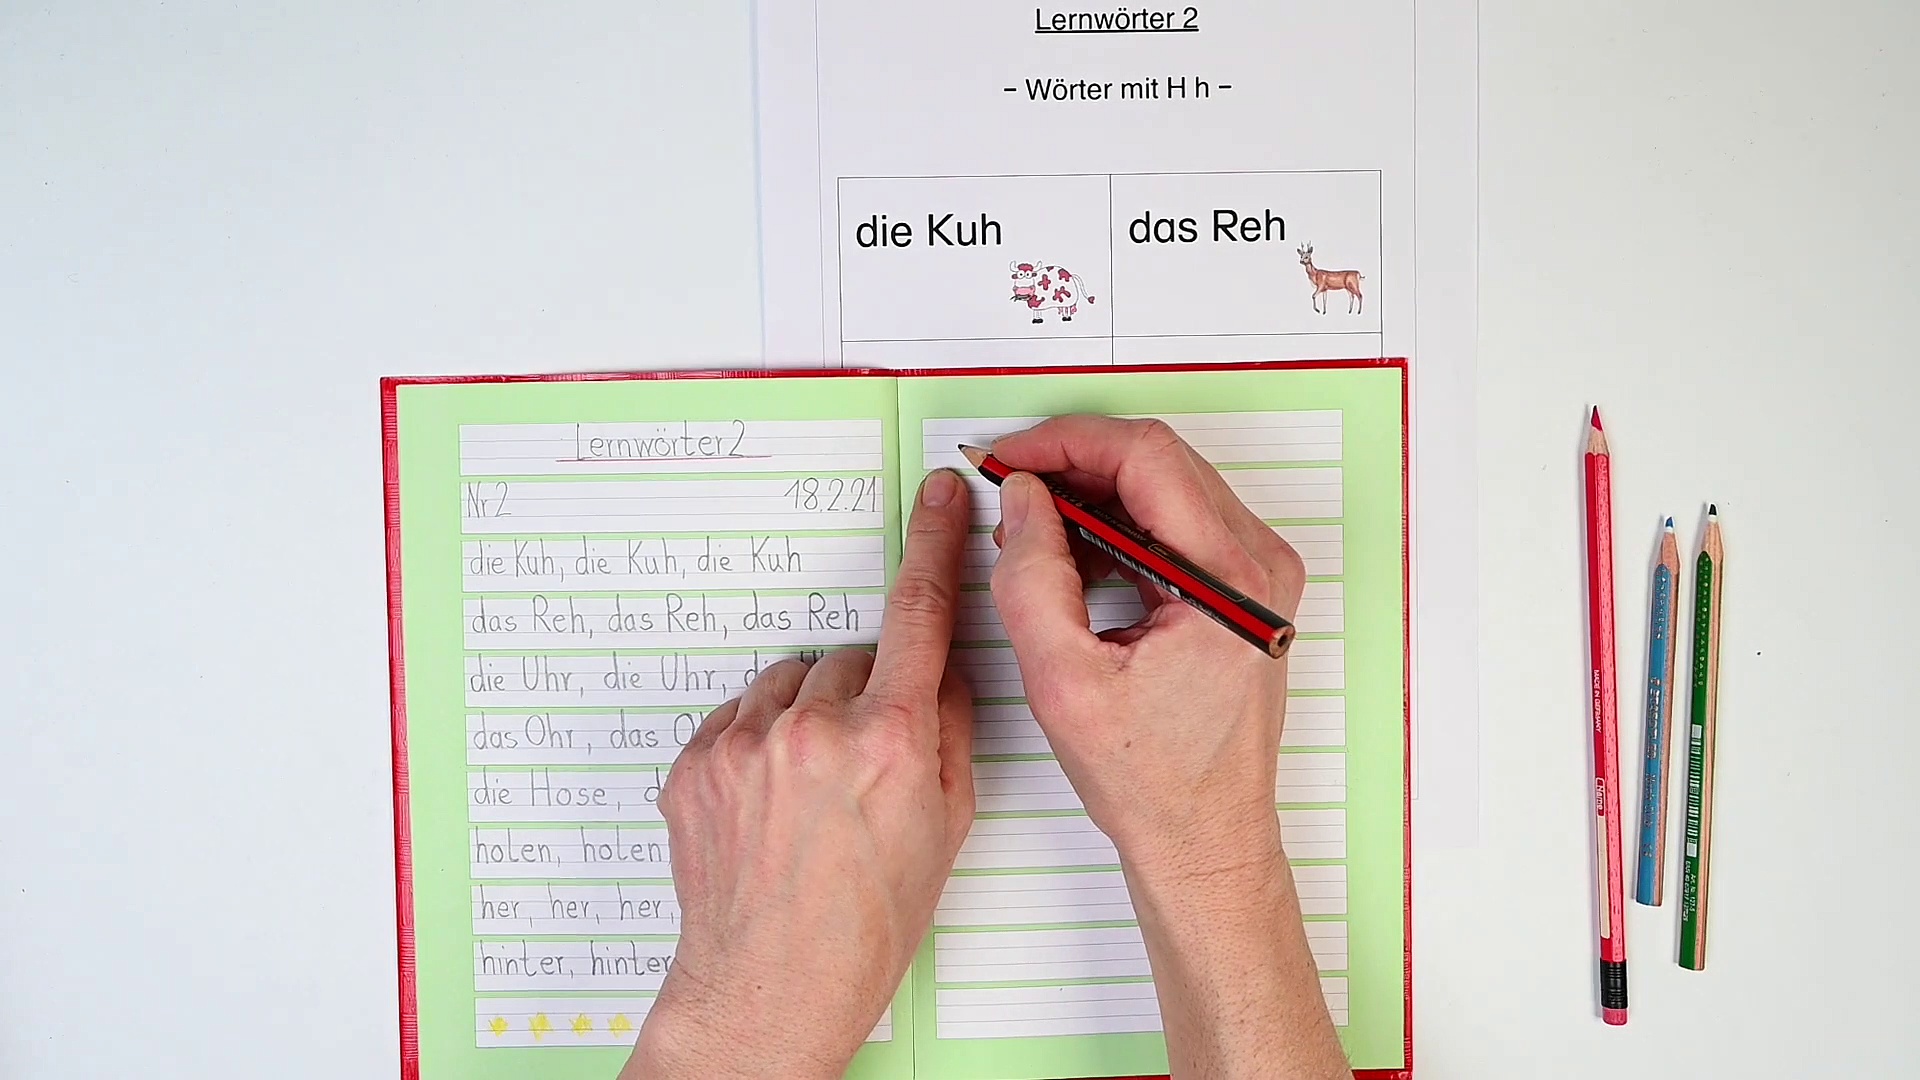 Lernwörter 2
– Wörter mit H h –
die Kuh
das Reh
Lernwörter 2
Nr 2 18.2.21
die Kuh, die Kuh, die Kuh
das Reh, das Reh, das Reh
die Uhr, die Uhr,
das Ohr, das
die Hose,
holen, holen
her, her, her,
hinter, hinter
MADE IN GERMANY
Name